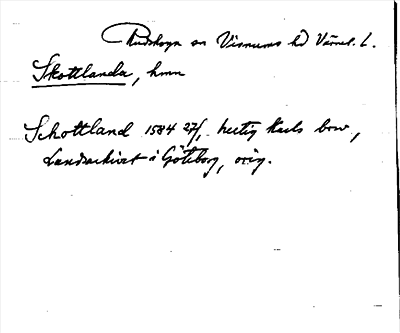 Rudskoga sn Visnums hd Värml. L.
Skottlanda, hmn
Schottland 1584 27/1 hertig Karls brev,
Landsarkivet i Göteborg, orig.